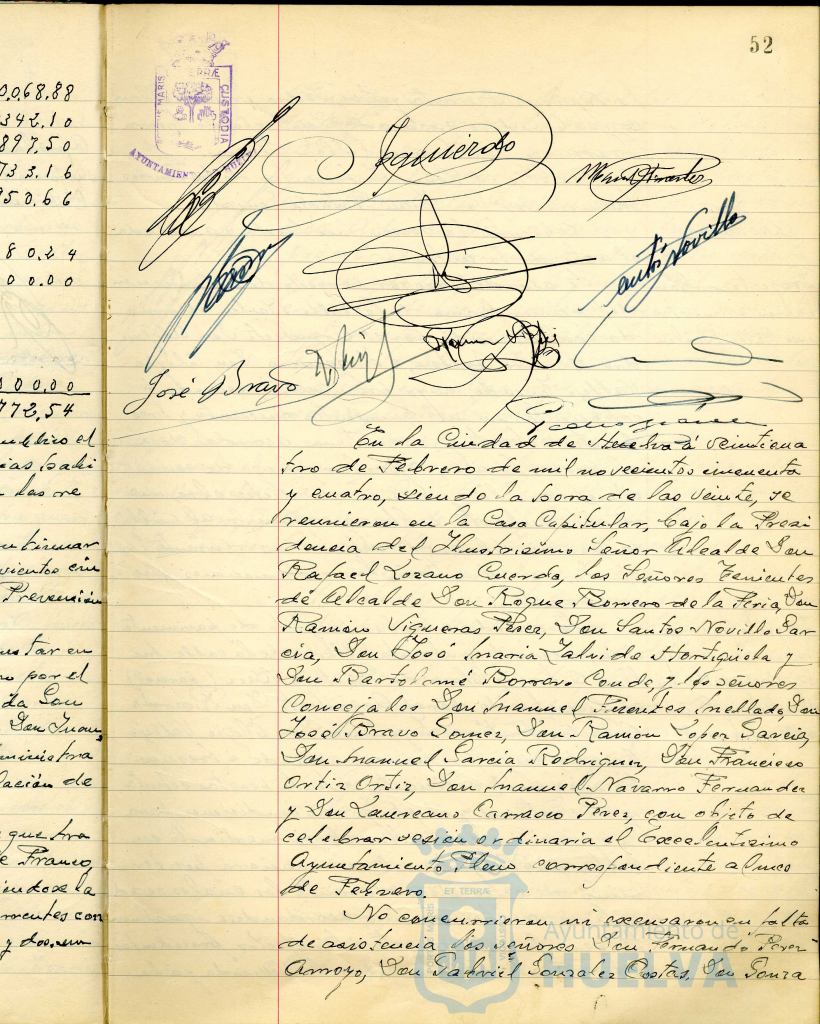 52
0,068,88
342,10
897,50
733,16
950,66
8 0,24
0 0.00
0 0 0,00
772,54
MARIS TERRÆ CUSTODIA
AYUNTAMIENTO
Izquierdo
José Bravo
En la Ciudad de Huelva á veinticua
tro de Febrero de mil novecientos cincuenta
y cuatro, siendo la hora de las veinte, se
reunieron en la Casa Capitular, bajo la Presi
dencia del Ilustrisimo Señor Alcalde Don
Rafael Lozano Cuerda, los Señores Tenientes
de Alcalde Don Roque Borrero de la Feria, Don
Ramón Vigueras Pérez, Don Santos Novillo Gar
cia, Don José Maria Zalvide Hortigüela y
Don Bartolomé Borrero Conde, y los señores
Concejales Don Manuel Fuentes Mellado, Don
José Bravo Gomez, Don Ramón Lopez Garcia,
Don Manuel Garcia Rodriguez, Don Francisco
Ortiz Ortiz, Don Manuel Navarro Fernandez
y Don Laureano Carrasco Pérez, con objeto de
celebrar sesión ordinaria el Excelentisimo
Ayuntamiento Pleno correspondiente al mes
de Febrero.
No concurrieron ni excusaron su falta
de asistencia los señores Don Fernando Perez
Arroyo, Don Gabriel Gonzalez Costas, Don Gonza
ET TERRÆ
Ayuntamiento de
HUELVA